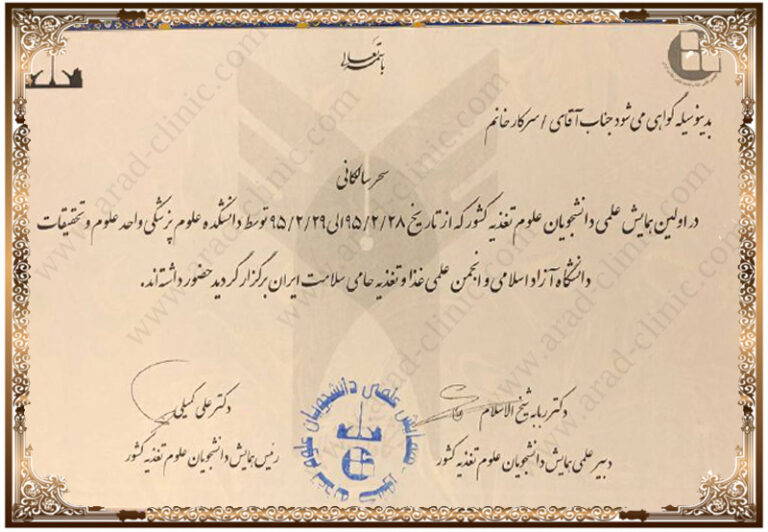 باسمه تعالی
بدینوسیله گواهی می شود جناب آقای / سرکار خانم
سحر سالکانی
در اولین همایش علمی دانشجویان علوم تغذیه کشور که از تاریخ ۹۵/۲/۲۸ الی ۹۵/۲/۲۹ توسط دانشکده علوم پزشکی واحد علوم و تحقیقات
دانشگاه آزاد اسلامی و انجمن علمی غذا و تغذیه حامی سلامت ایران برگزار گردید حضور داشته اند.
دکتر ربابه شیخ الاسلام
دبیر علمی همایش دانشجویان علوم تغذیه کشور
دکتر علی کمیلی
رئیس همایش دانشجویان علوم تغذیه کشور
همایش علمی دانشجویان علوم تغذیه کشور
www.arad-clinic.com